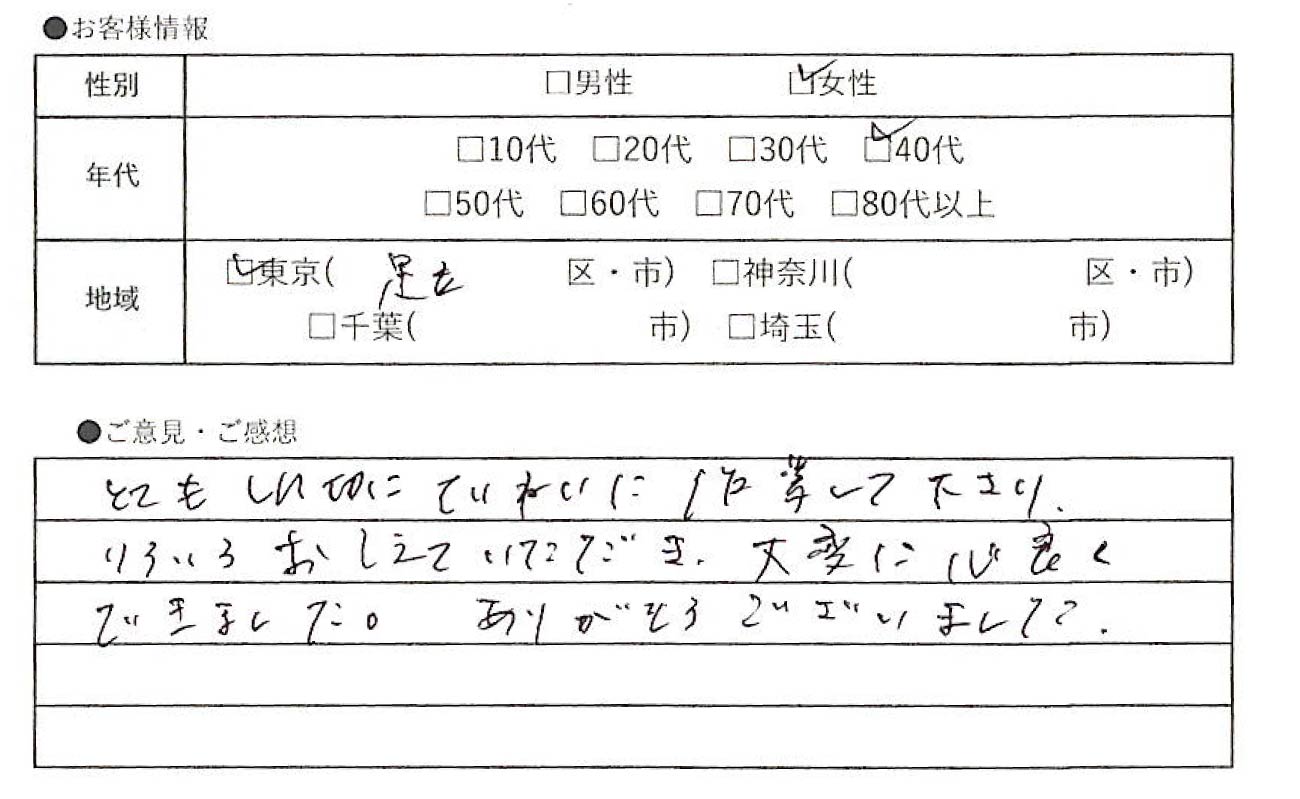 ●お客様情報
性別 □男性 ☑女性
年代 □10代 □20代 □30代 ☑40代
□50代 □60代 □70代 □80代以上
地域 ☑東京( 足立 区・市) □神奈川( 区・市)
□千葉( 市) □埼玉( 市)
●ご意見・ご感想
とても しん切に ていねいに 作業して下さり、
いろいろ おしえていただき、大変に心良く
できました。 ありがとうございました。